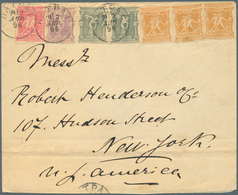 Messrs
Robert Henderson & Co
107. Hudson Street
New-York.
U. S. America